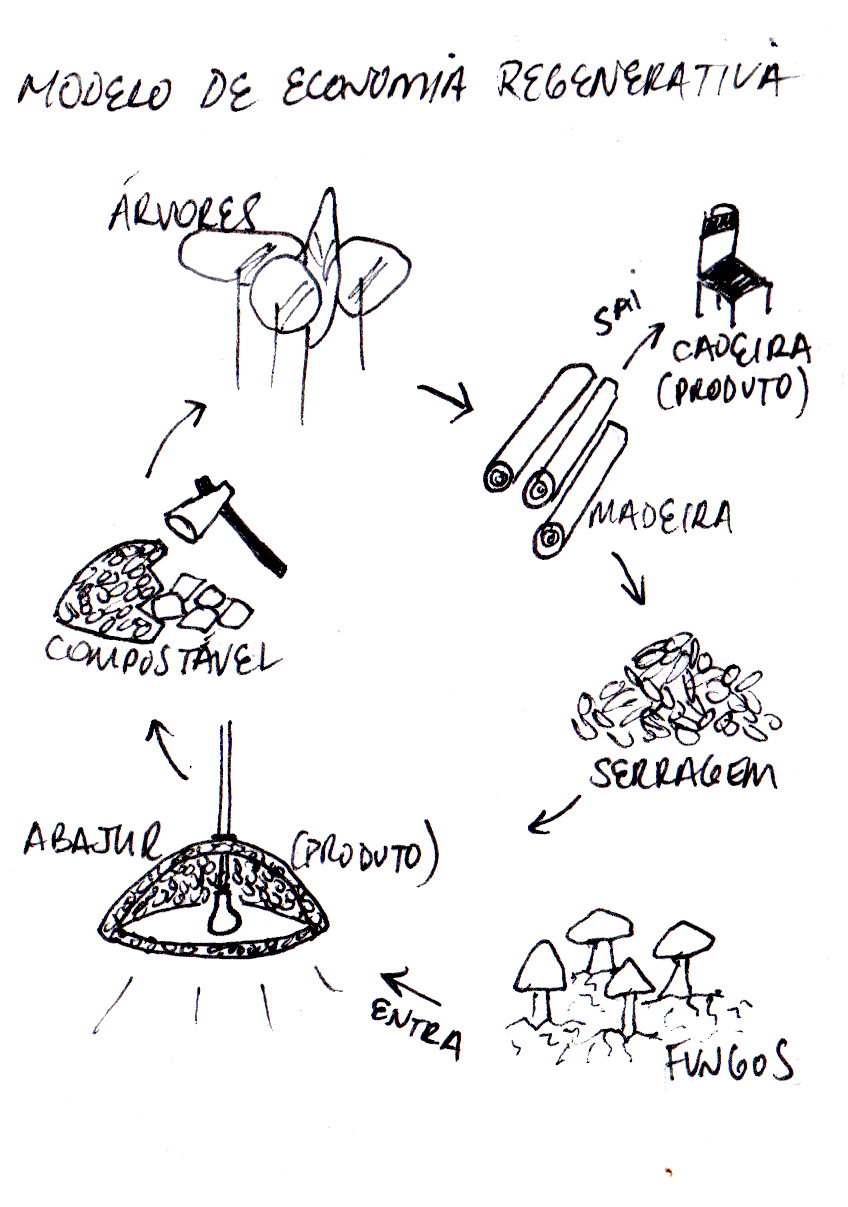 MODELO DE ECONOMIA REGENERATIVA
ÁRVORES
SAI
CADEIRA
(PRODUTO)
MADEIRA
SERRAGEM
FUNGOS
ENTRA
ABAJUR (PRODUTO)
COMPOSTÁVEL